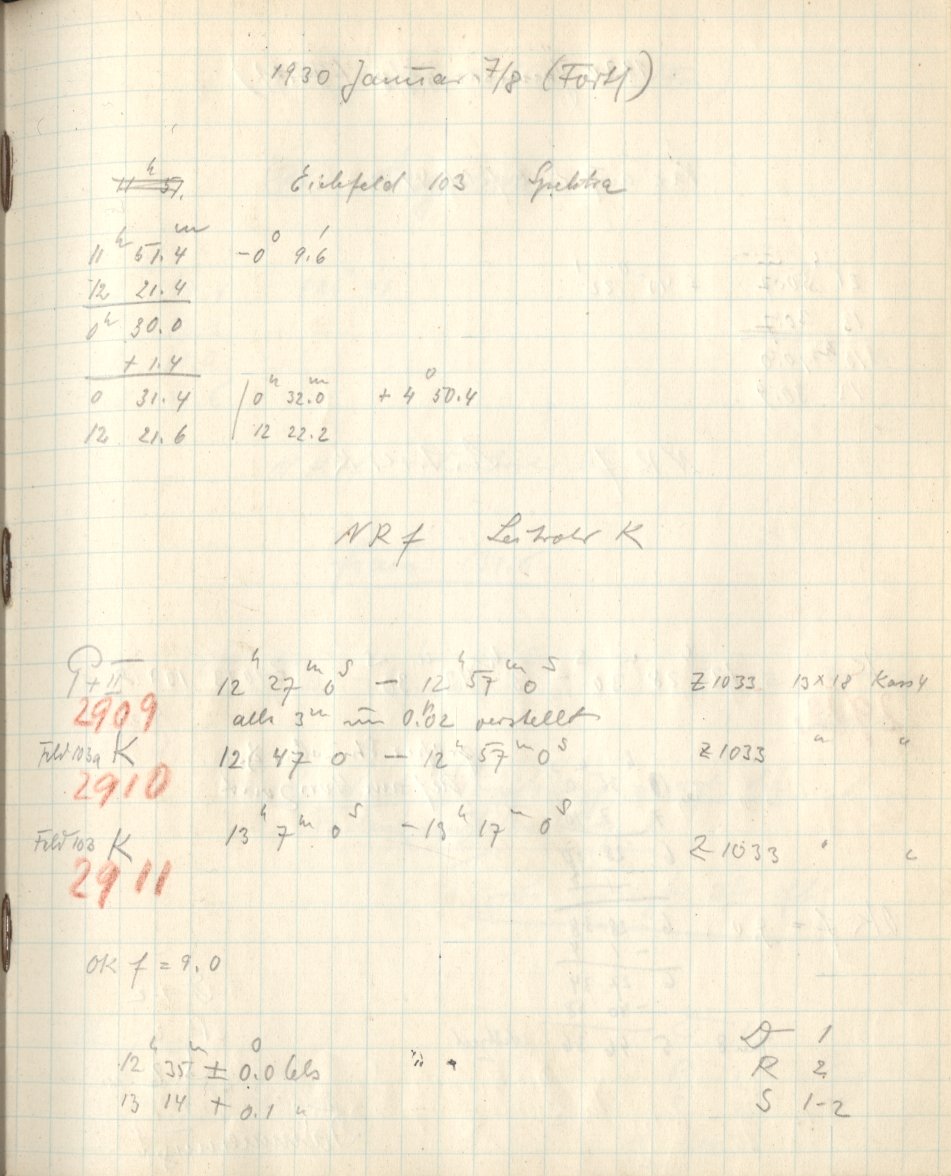 1930 Januar 7/8 (Forts)
11h 51. Eichfeld 103 Spektra
11h 51.4m -0° 9.6'
12 21.4
0h 30.0
+ 1.4
0 31.4 0h 32.0m + 4° 50.4
12 21.6 12 22.2
NR f Leitrohr K
P+II 12h 27m 0s — 12h 57m 0s Z 1033 13x18 Kass 4
2909 alle 3m um 0.02 verstellt
Feld 103a K 12 47 0 — 12h 57m 0s Z 1033 " "
2910
Feld 103 K 13h 7m 0s — 13h 17m 0s Z 1033 " "
2911
OK f = 9.0
D 1
12h 35m ± 0.0° Cels R 2
13 14 + 0.1 " S 1-2